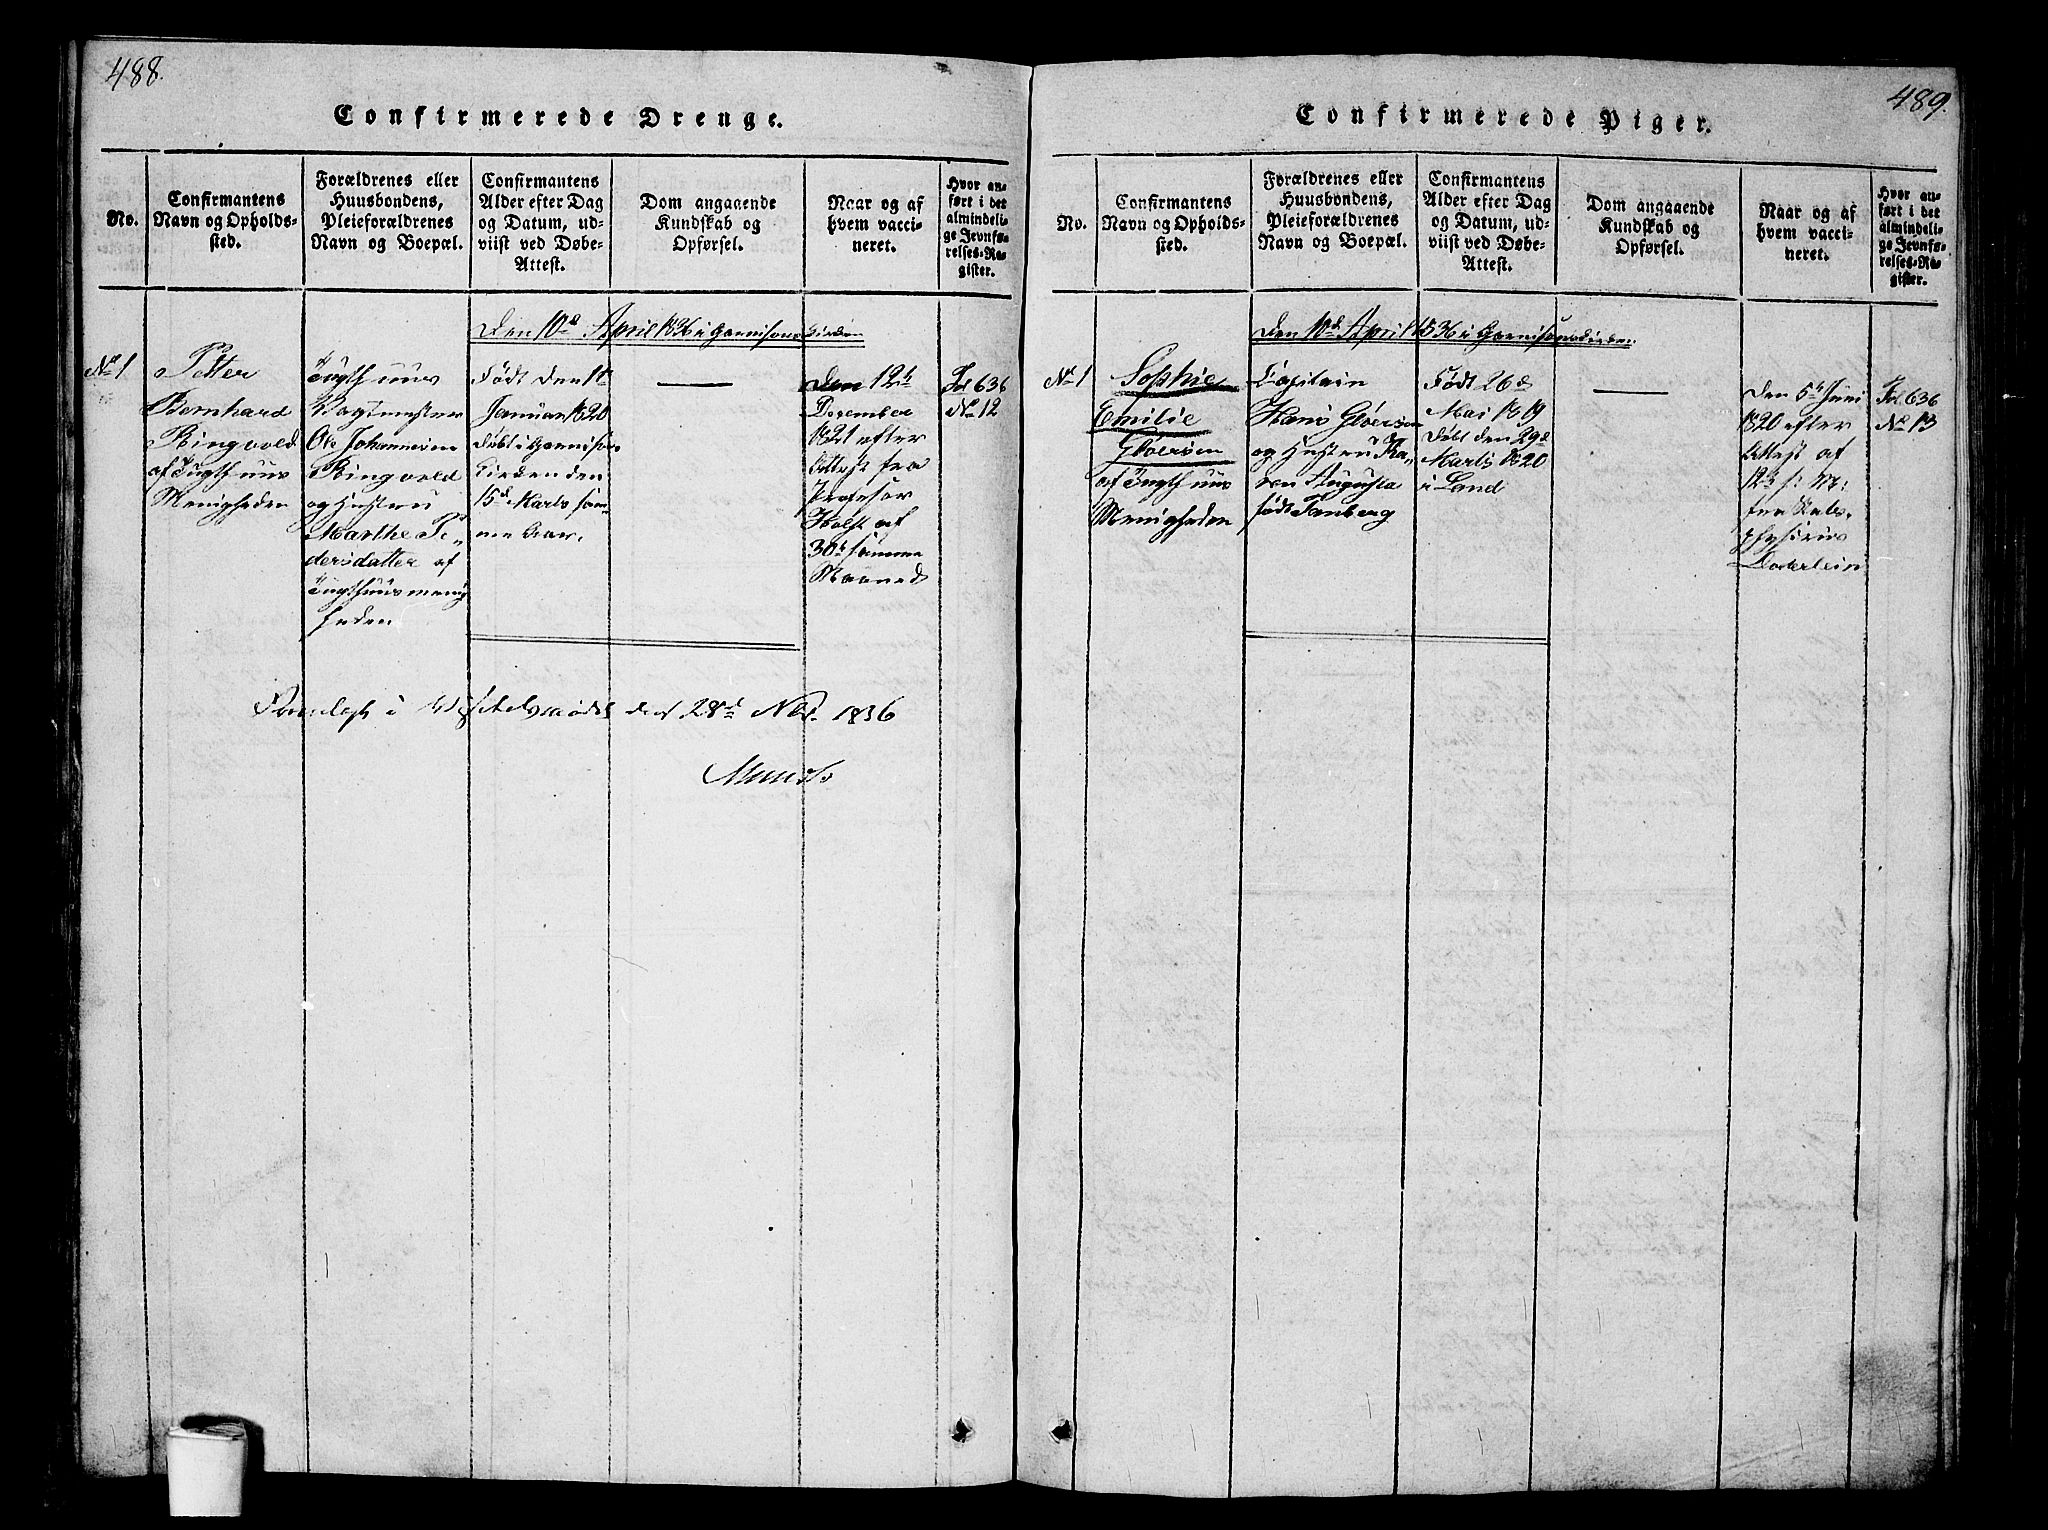 488.
Confirmerede Drenge.
No.
Confirmantens
Navn og Opholds-
sted.
Forældrenes eller
Huusbondens,
Pleieforældrenes
Navn og Boepæl.
Confirmantens
Alder efter Dag
og Datum, ud-
viist ved Døbe-
Attest.
Dom angaaende
Kundskab og
Opførsel.
Naar og af
hvem vacci-
neret.
Hvor an-
ført i det
almindeli-
ge Jevnfø-
relses-Re-
gister.
Den 10d April 1836 i Garnisonskirken
No 1
Petter
Bernhard
Ringvold
af Tugthuus
Menigheden
Tugthuus
Vagtmester
Ole Johannesen
Ringvold
og Hustru
Marthe Pe-
dersdatter af
Tugthuusmenig
heden
Født den 11te
Januar 1820
Døbt i Garnisons
Kirken den
15d Marts sam-
me Aar.
Den 12te
December
1821 efter
Attest fra
Profesor
Holst af
30te samme
Maaned
Fol 636
No 12
Foreviist i den 28de Nov. 1836
Munch
489.
Confirmerede Piger.
No.
Confirmantens
Navn og Opholds-
sted.
Forældrenes eller
Huusbondens,
Pleieforældrenes
Navn og Boepæl.
Confirmantens
Alder efter Dag
og Datum, ud-
viist ved Døbe-
Attest.
Dom angaaende
Kundskab og
Opførsel.
Naar og af
hvem vacci-
neret.
Hvor an-
ført i det
almindeli-
ge Jevnfø-
relses-Re-
gister.
Den 10d April 1836 i Garnisonskirken
No 1
Sophie
Emilie
Gløersen
af Tugthuus
Menigheden
Capitain
Hans Gløersen
og Hustru Ka-
ren Augusta
født Tanberg
Født 26de
Mai 1819
Døbt den 29de
Marts 1820
i Land
Den 5te Juni
1820 efter
Attest af
12te s: M:
fra Stads-
physicus
Døderlein
Fol 636
No 13